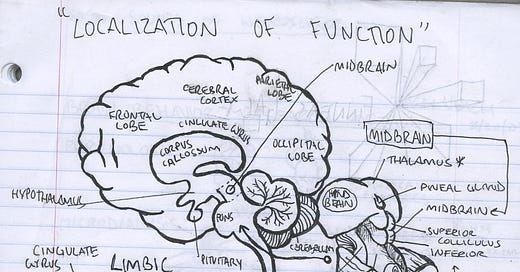 "LOCALIZATION OF FUNCTION"
MIDBRAIN
PARIETAL
LOBE
CEREBRAL
CORTEX
FRONTAL
LOBE
CINGULATE GYRUS
CORPUS
CALLOSUM
OCCIPITAL
LOBE
MIDBRAIN
THALAMUS *
PINEAL GLAND
HIND
BRAIN
MIDBRAIN
HYPOTHALAMUS
PONS
SUPERIOR
COLLICULUS
INFERIOR
CEREBELLUM
PITUITARY
CINGULATE
GYRUS
LIMBIC